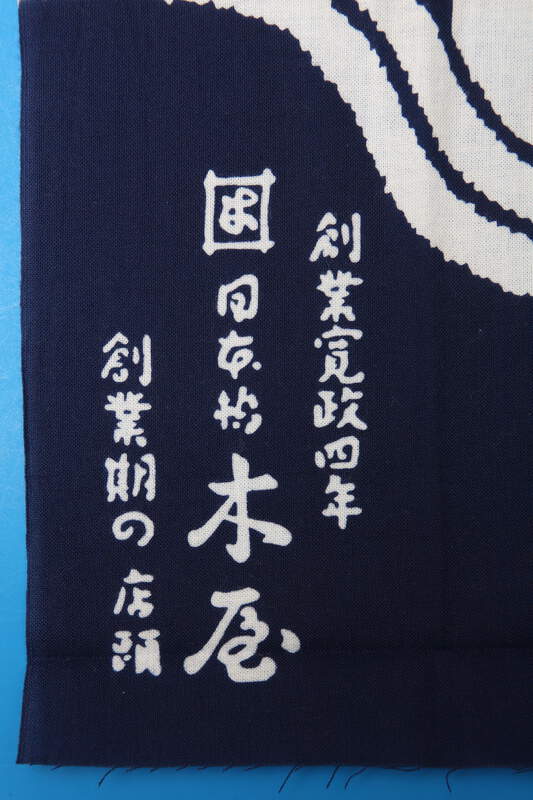 創業寛政四年
日本橋木屋
創業期の店頭